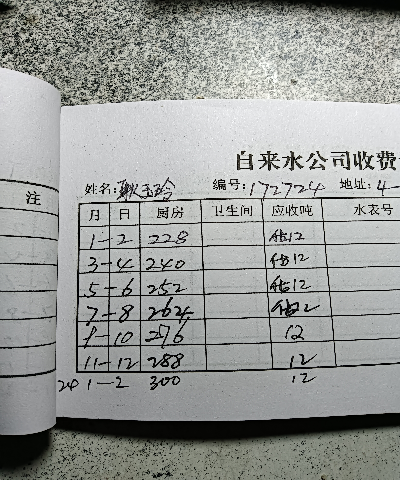 注
自来水公司收费
姓名: 耿玉玲 编号: 172724 地址: 4-
月 日 厨房 卫生间 应收吨 水表号
1-2 228 估12
3-4 240 估12
5-6 252 估12
7-8 264 估12
9-10 276 12
11-12 288 12
24 1-2 300 12